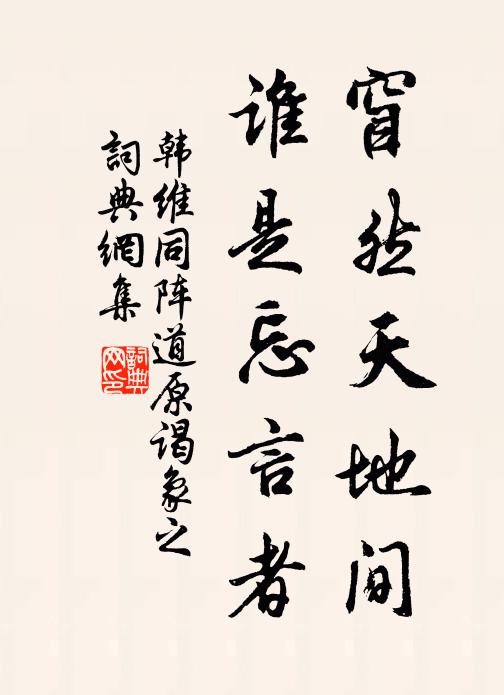 窅然天地间
谁是忘言者
韩维同阵道原谒象之
詞典網集
詞典
网印